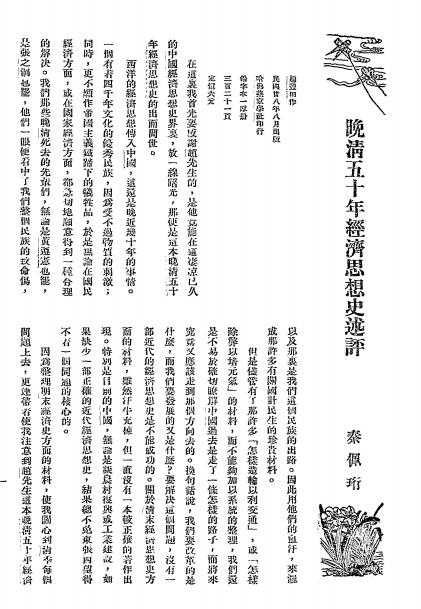 晚清五十年經濟思想史述評
秦佩珩
趙豐田作
民國廿八年八月出版
哈佛燕京學社印行
鉛字本一厚冊
三百二十一頁
定價六元
在這裏我首先要感謝趙先生的,是他竟能在這淒涼已久
的中國經濟思想史界裏,放一線曙光,那便是這本晚清五十
年經濟思想史的出而問世。
西洋的經濟思想傳入中國,這還是晚近幾十年的事情。
一個有着四千年文化的優秀民族,因爲受不過物質的刺激;
同時,更不願作帝國主義鐵蹄下的犧牲品,於是無論在國民
經濟方面,或在國家經濟方面,都急切地願意得到一種合理
的解決。我們那些晚清死去的先輩們,無論是黃遵憲也罷,
是張之洞也罷,他們一眼便看中了我們整個民族的致命傷,
以及那裏是我們這個民族的出路。因此用他們的血汗,來湛
成那許多有關國計民生的珍貴材料。
但是儘管有了那許多「怎樣造輪以利交通」,或「怎樣
除弊以培元氣」的材料,而不能夠加以系統的整理,我們還
是不易於確切瞭解中國過去是走了一條怎樣的路子,而將來
究竟又應該走到那個方向去的。換句話說,我們要改革的是
什麽,而我們要發展的又是什麽?要解決這個問題,沒有一
部近代的經濟思想史是不能成功的。關於清末經濟思想史方
面的材料,雖然汗牛充棟,但一直沒有一本較正確的著作出
現。特別是目前的中國,無論是談農村復興或工業建設,如
果缺少一部正確的近代經濟思想史,結果總不免東張西望得
不着一個問題的核心的。
因爲整理明末經濟史方面的材料,使我關心到清季每個
問題上去,更連帶着使我注意到趙先生這本晚清五十年經濟
一